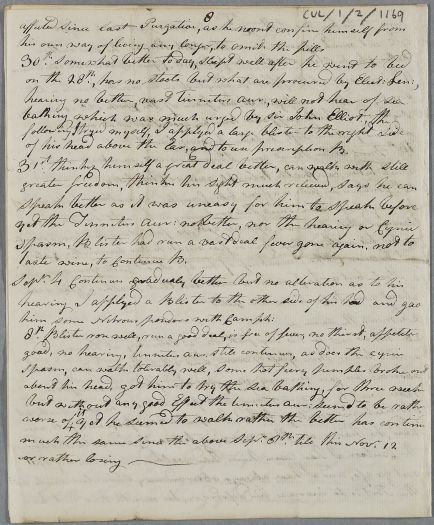 8
CUL/1/2/1169
affected since last Purgation, as he wont confine himself from
his own way of living any longer, to omit the pills
30th. Somewhat better to day, slept well after he went to bed
on the 28th, has no stools but what are procured by Elect: Len:
hearing no better, vast tinnitus aur, will not hear of sea
bathing which was much urged by Sir John Elliot, The
following I tryed myself, I applyed a large blister to the right side
of his head above the Ear, and to use prescription B.
31st thinks himself a great deal better, can walk with still
greater freedom, thinks his sight much relieved, says he can
speak better as it was uneasy for him to speak before
yet the Tinnitus aur: no better, nor the hearing or Cynic
Spasm, Blister had run a vast deal fever gone again, not to
taste wine, to Continue B.
Sepr. 4 Continues gradualy better but no alteration as to his
hearing I applyed a Blister to the other side of his head and gave
him some Nitrous powders with Camph:
8th. Blister ran well, run a good deal, is free of fever, no thirst, appetite
good, no hearing, tinnitus aur. still continues, as does the cynic
spasm, can walk tolerably well, some hot fiery pimples broke out
about his head, got him to try the sea bathing for three weeks
but without any good Effect the tinnitus aur: seemed to be rather
worse of it, yet he seemed to walk rather the better has continued
much the same since the above Sepr. 8th. till this Nov. 12
or rather losing